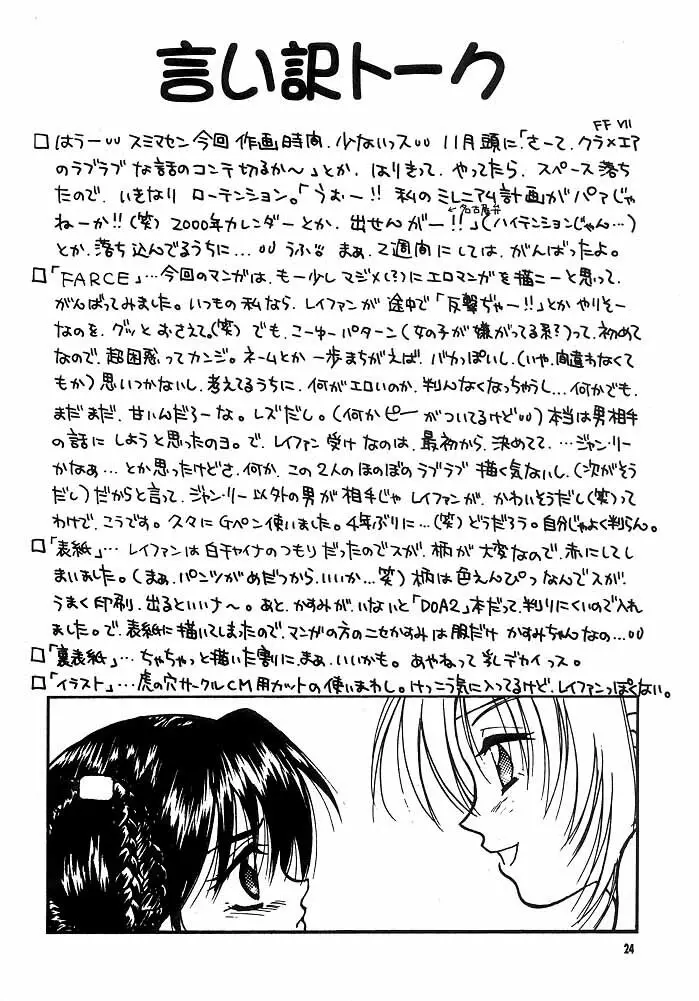 言い訳トーク
FF VII
□はうー○○ スミマセン今回 作画時間、少ないっス○○ 11月頭に「さーて、クラ×エア
のラブラブな話のコンテ切るか〜」とか、はりきって、やってたら、スペース落ち
たので、いきなり ローテンション。「うおー!! 私のミレニアム計画がパァじゃ
ねーか!!(笑) 2000年カレンダーとか、出せんがー!!」(ハイテンションじゃん…)
←名古屋弁
とか、落ち込んでるうちに…○○ うふ まぁ、2週間にしては、がんばったよ。
□「FARCE」…今回のマンガは、もー少しマジメ(?)にエロマンガを描こーと思って、
がんばってみました。いつもの私なら、レイファンが途中で「反撃ぢゃー!!」とかやりそー
なのを、グッとおさえて。(笑) でも、こーゆーパターン(女の子が嫌がってる系?)って、初めて
なので、超困惑ってカンジ。ネームとか一歩まちがえば、バカっぽいし、(いや、間違わなくて
もか)思いつかないし、考えてるうちに、何がエロいのか、判んなくなっちゃうし…何かでも、
まだまだ、甘いんだろーな。レズだし。(何かピーがついてるけど○○)本当は男相手
の話にしようと思ったのヨ。で、レイファン受けなのは、最初から、決めてて、…ジャン・リー
かなぁ…とか思ったけどさ、何か、この2人のほのぼのラブラブ描く気ないし、(次がそう
だし)だからと言って、ジャン・リー以外の男が相手じゃレイファンが、かわいそうだし(笑)って
わけで、こうです。久々にGペン使いました。4年ぶりに…(笑)どうだろう。自分じゃよく判らん。
□「表紙」…レイファンは白チャイナのつもりだったのでスが、柄が大変なので、赤にしてし
まいました。(まぁ、パンツがめだつから、いいか…笑)柄は色えんぴつなんでスが、
うまく印刷、出るといいナ〜。あと、かすみがいないと「DOA2」本だって、判りにくいので入れ
ました。で、表紙に描いてしまったので、マンガの方のニセかすみは服だけかすみちゃんなの…○○
□「裏表紙」…ちゃちゃっと描いた割に、まぁ、いいかも。あやねって乳デカイっス。
□「イラスト」…虎の穴サークルCM用カットの使いまわし。けっこう気に入ってるけど、レイファンっぽくない。
24